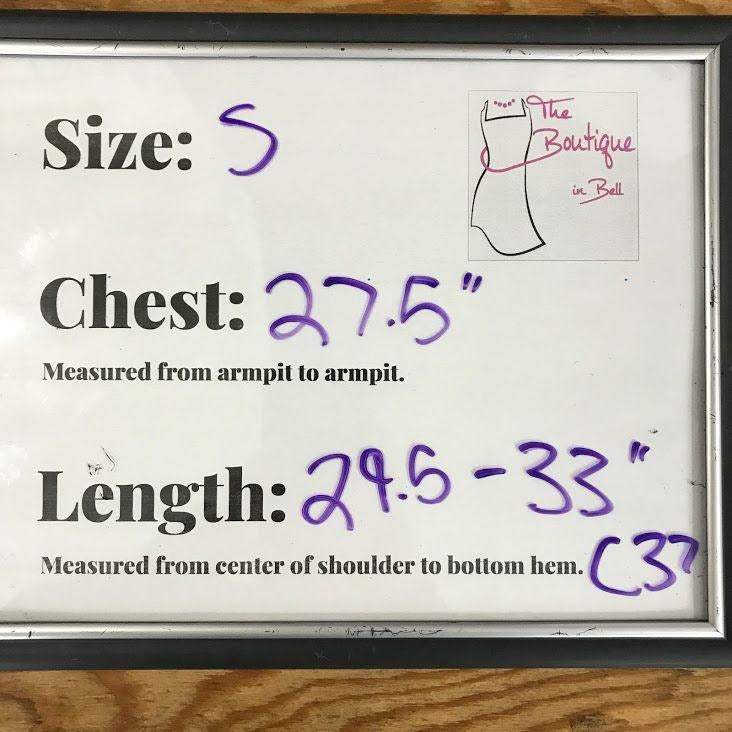 Size: S
The
Boutique
in Bell
Chest: 27.5"
Measured from armpit to armpit.
Length: 29.5-33"
Measured from center of shoulder to bottom hem. (37